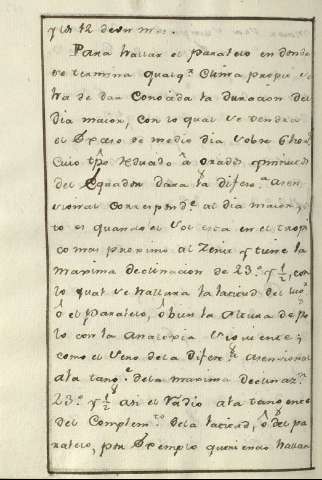 y los 12 de un mes.
Para hallar el paralelo en donde
se termina qualqᵃ Clima propio se
ha de dar Conocida la duracion del
dia maior, con lo qual se vendra
el Exceso de medio dia sobre 6 hor.ˢ
Cuio tpo reduzdo â Grados y minutos
del Equador dara la difer.ᵃ Asen-
sional correspond.ᵉ al dia maior, es-
to es quando el Sol esta en el tropi-
co mas proximo al Zenit y tiene la
maxima declinacion de 23.º y ½, con
lo qual se hallara la latitud del
ô el paralelo, ô bien la Altura de Po-
lo con la Analogia siguiente;
como el Seno dela difer.ᵃ Asensional
ala tang.ᵉ dela maxima declinaz.ⁿ
23.º y ½ asi el Radio ala tangente
del Complem.ᵗᵒ dela latitud, ô del pa-
ralelo, por Exemplo queriendo hallar